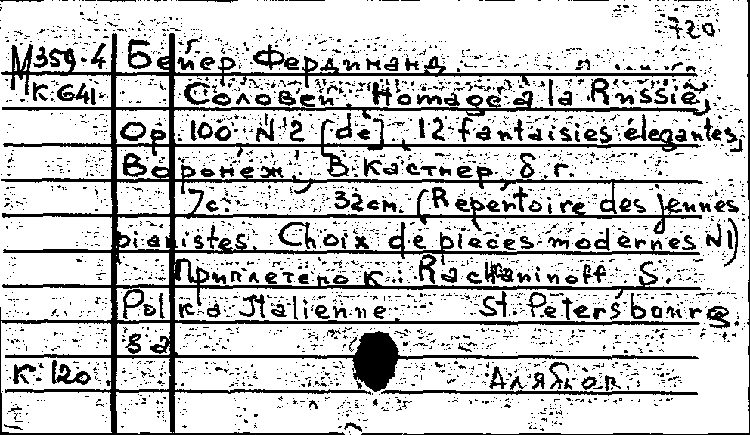 720
М 359-4 Бейер, Фердинанд.
К.641 Соловей. Homage à la Russie,
Op. 100 N 2 [de], 12 fantaisies élegantes,
Воронеж, В. Кастнер, б.г.
7с. 32см. (Repentoire des jennes
pianistes. Choix de pieces modernes N1)
Приплетено к: Rachaninoff, S.
Polka Italienne. St. Petersbourg.
K. 120 Алябьев